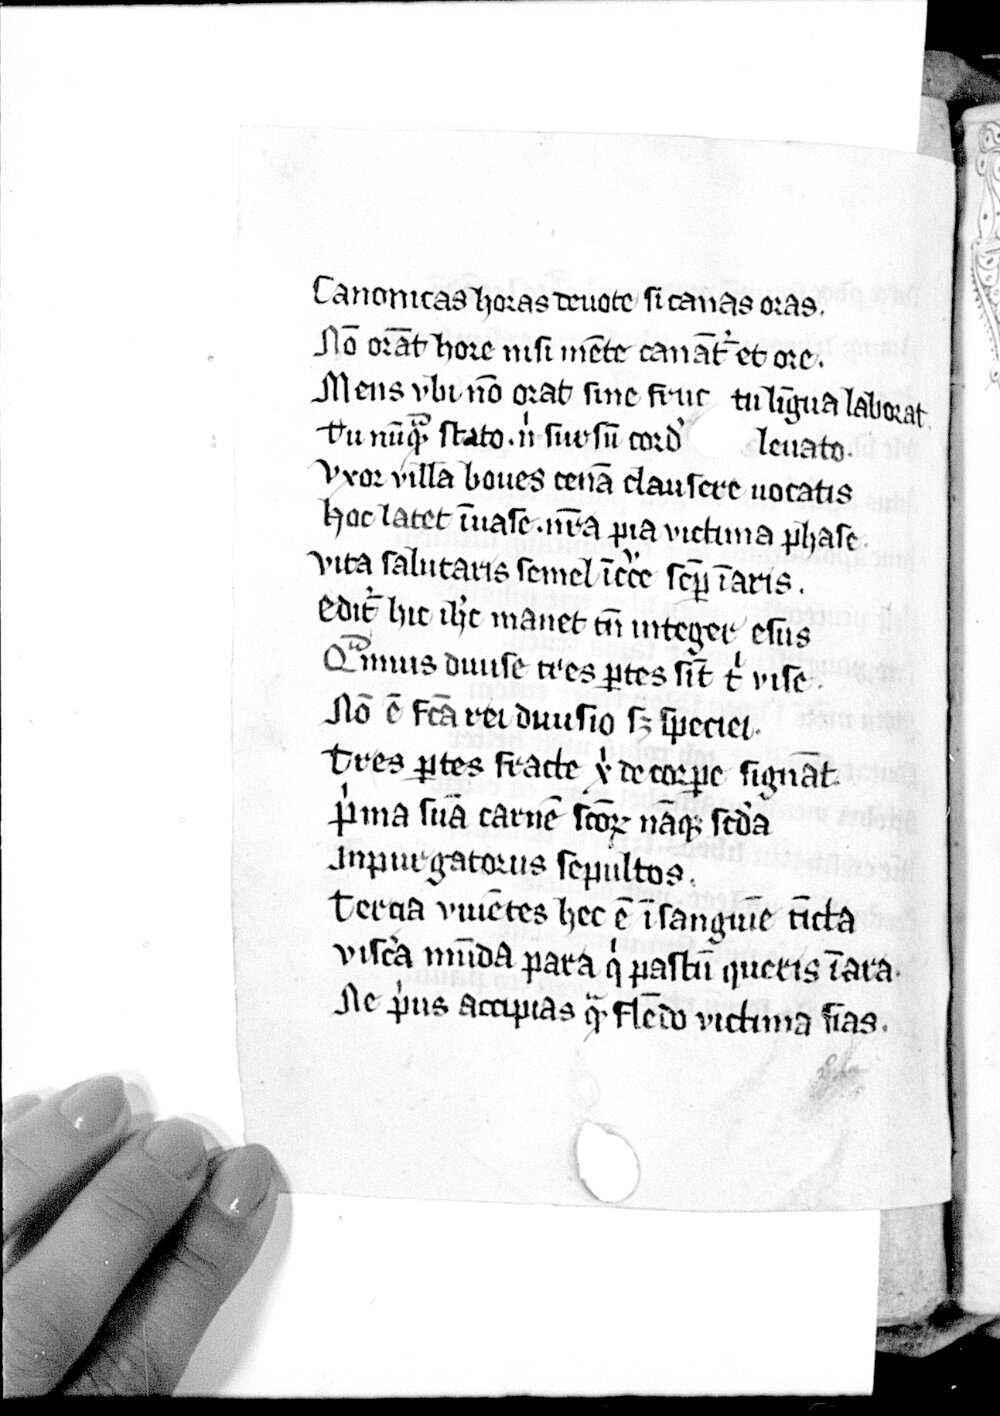 Canonicas horas deuote si canas oras.
Nō orāt hore nisi mēte canāt᷑ et ore.
Mens vbi nō orat sine fruc tu līgua laborat.
Tu nūqͣꝫ stato. nͥ sursū cord leuato.
Vxor villa boues cenā clausere uocatis
hoc latet īuase. mr̄a pia victima phase.
Vita salutaris semel īcͨce sēꝑ īaris.
Edit᷑ hic ilꝉc manet tn̄ integer esus
Qͣmuis diuise tres ꝑtes sn̄t tͥ vise.
Nō ē fc̄a rei diuisio sꝫ speciei.
Tres ꝑtes fracte xͥ de corꝑe signāt.
pͥma suā carnē sc̄oꝝ nāqꝫ scd̄a
Inpurgatorijs sepultos.
Tercia viuētes hec ē īsanguīe tīcta
viscͣa mūda para qͥ pastū queris īara.
Ne pͥus accipias qͣꝫ flēdo victima fias.